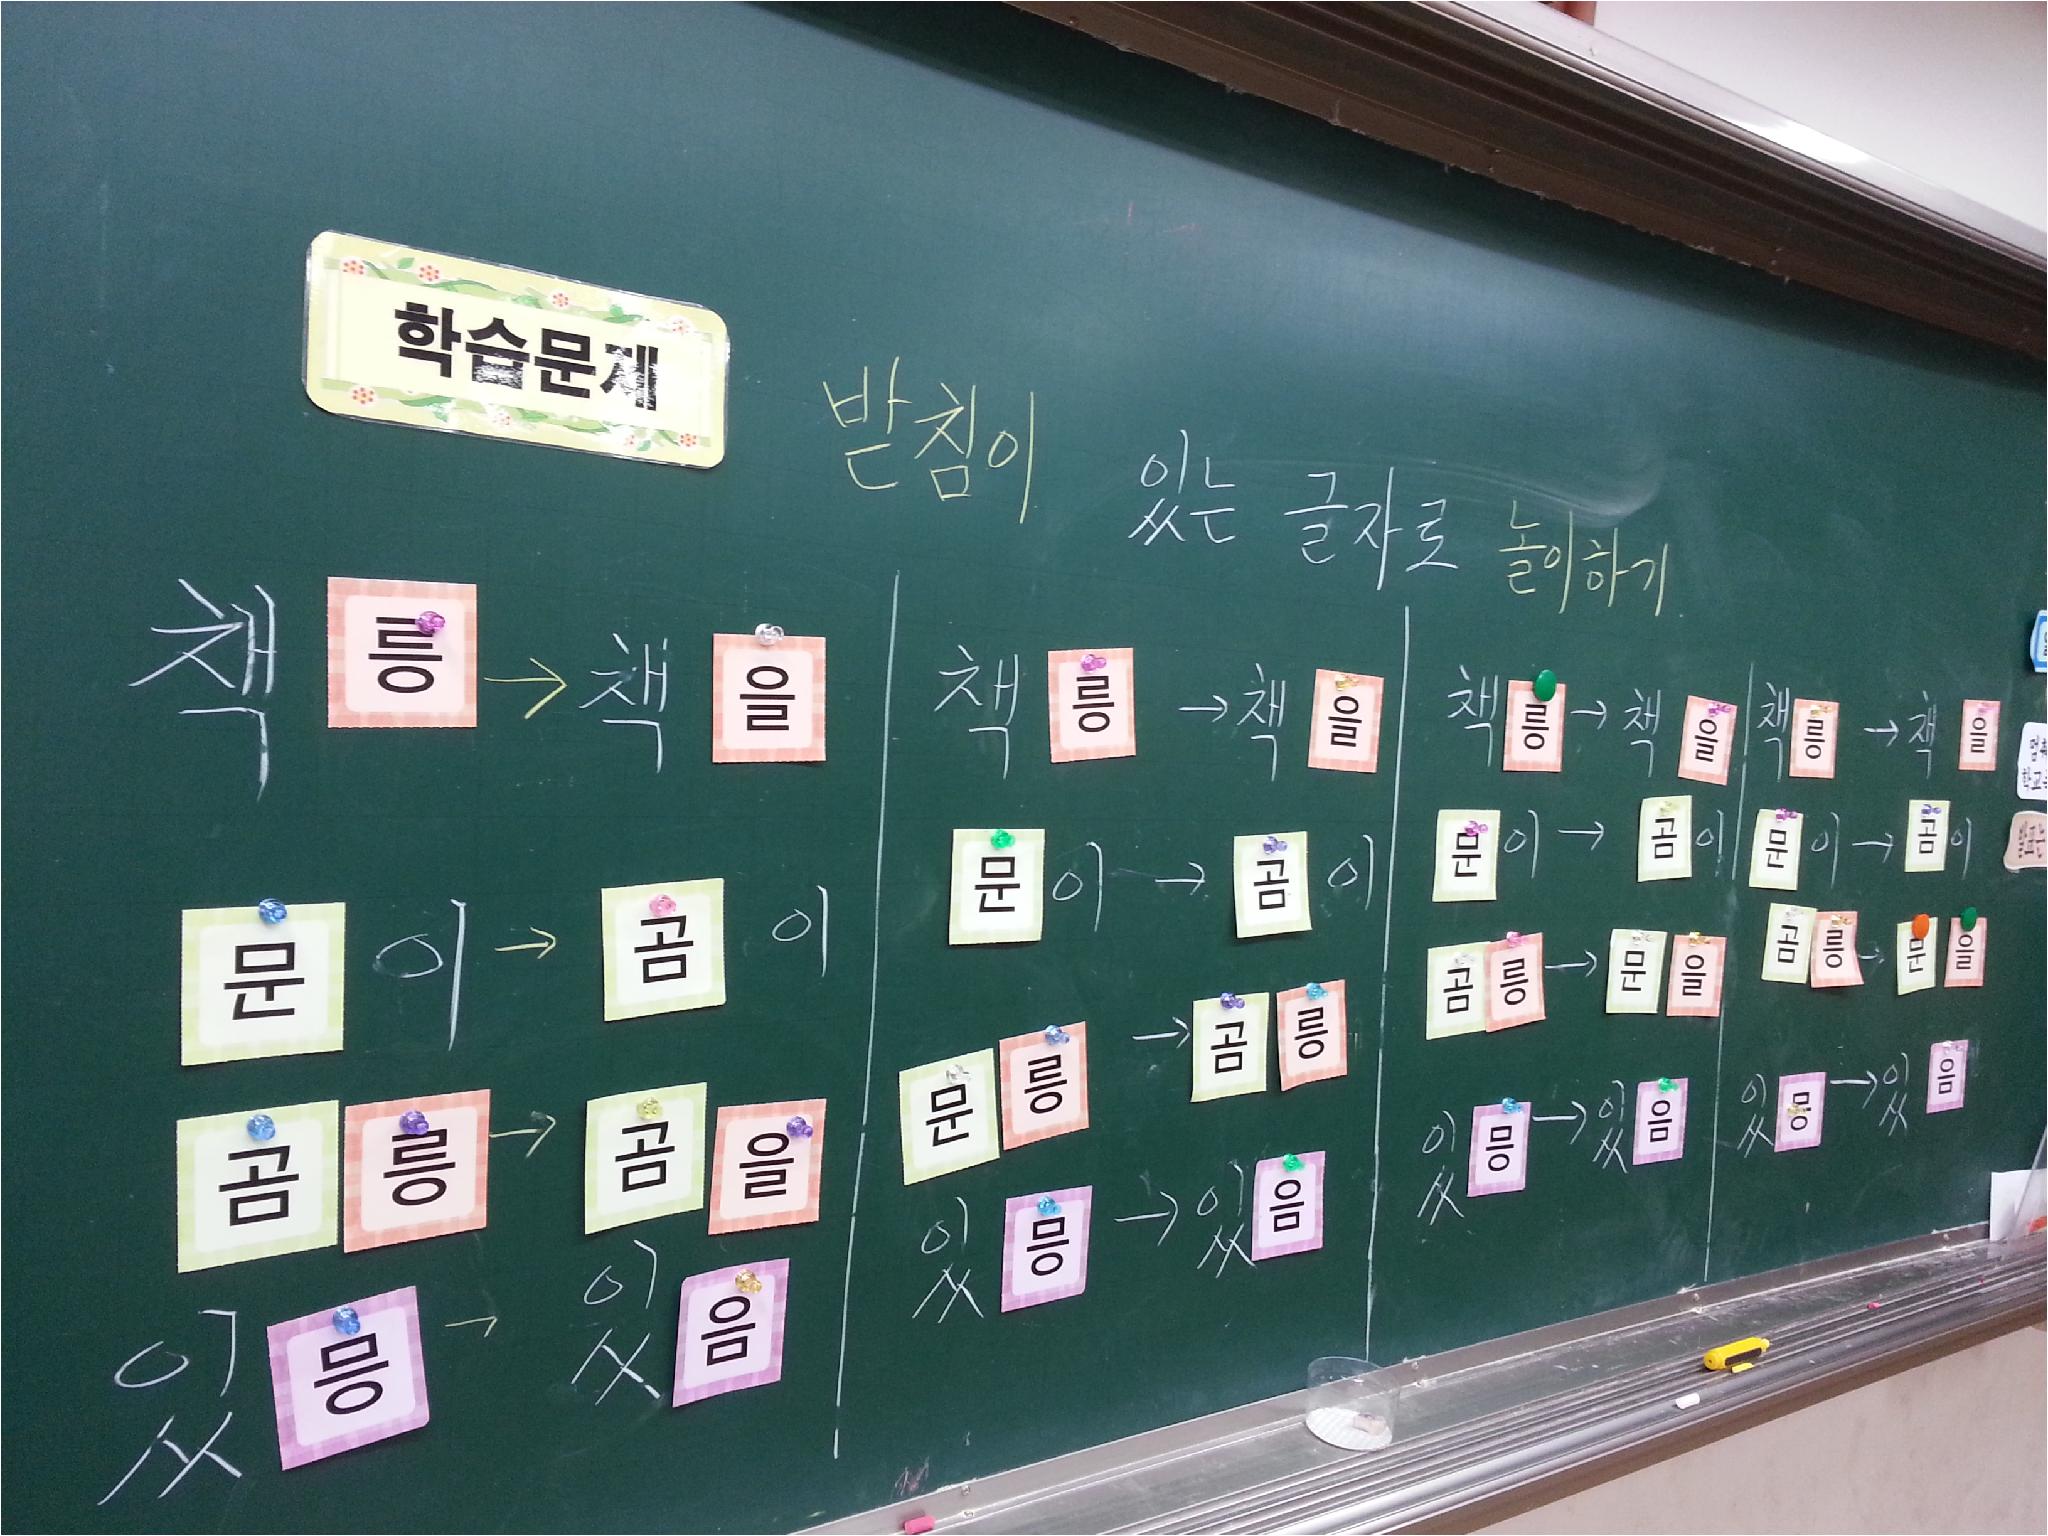 학습문제
받침이 있는 글자로 놀이하기
책 릉 → 책 을
문 이 → 곰 이
곰 릉 → 곰 을
있 믕 → 있 음
책 릉 → 책 을
문 이 → 곰 이
문 릉 → 곰 릉
있 믕 → 있 음
책 릉 → 책 을
문 이 → 곰 이
곰 릉 → 문 을
있 믕 → 있 음
책 릉 → 책 을
문 이 → 곰 이
곰 릉 → 문 을
있 믕 → 있 음